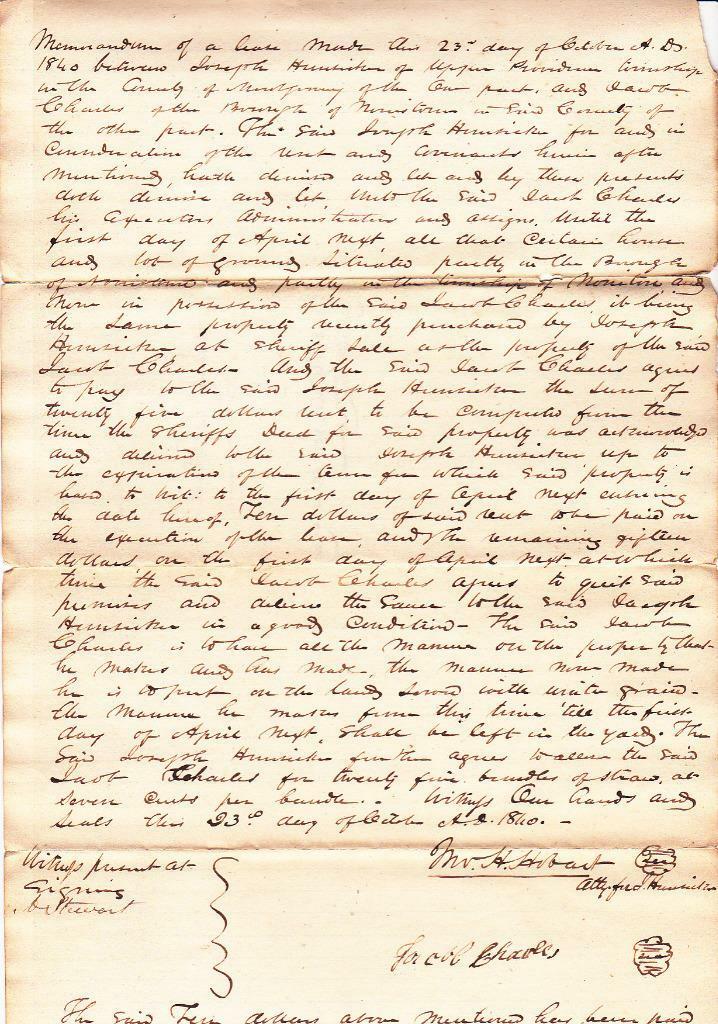 Memorandum of a lease made this 23d day of October A.D.
1840 between Joseph Hunsicker of Upper Providence township
in the County of Montgomery of the one part, and Jacob
Charles of the Borough of Norristown in said County of
the other part. The said Joseph Hunsicker for and in
Consideration of the rent and covenants herein after
mentioned, hath demised and let and by these presents
doth demise and let, unto the said Jacob Charles
his Executors Administrators and assigns, until the
first day of April next, all that certain house
and lot of ground situated partly in the Borough
of Norristown and partly in the township of Norriton and
now in possession of the said Jacob Charles, it being
the same property recently purchased by Joseph
Hunsicker at Sheriff sale as the property of the said
Jacob Charles - And the said Jacob Charles agrees
to pay to the said Joseph Hunsicker the sum of
twenty five dollars rent to be computed from the
time the Sheriffs Deed for said property was acknowledged
and delivered to the said Joseph Hunsicker up to
the expiration of the term for which said property is
leased to wit: to the first day of April next ensuing
the date hereof, Ten dollars of said rent to be paid on
the execution of the lease, and the remaining fifteen
dollars on the first day of April next at which
time the said Jacob Charles agrees to quit said
premises and deliver the same to the said Joseph
Hunsicker in a good condition - The said Jacob
Charles is to have all the manure on the property that
he makes and has made, the manure now made
he is to put on the land sowed with winter grain -
the manure he makes from this time 'till the first
day of April next, shall be left in the yard. The
said Joseph Hunsicker further agrees to allow the said
Jacob Charles for twenty five bundles of straw, at
seven cents per bundle. - Witness Our hands and
seals this 23d day of October A.D. 1840. -
Witness present at
Signing
Stewart
Jno. H. Hobart
Atty for J. Hunsicker
Jacob Charles
The said Ten dollars above mentioned has been paid